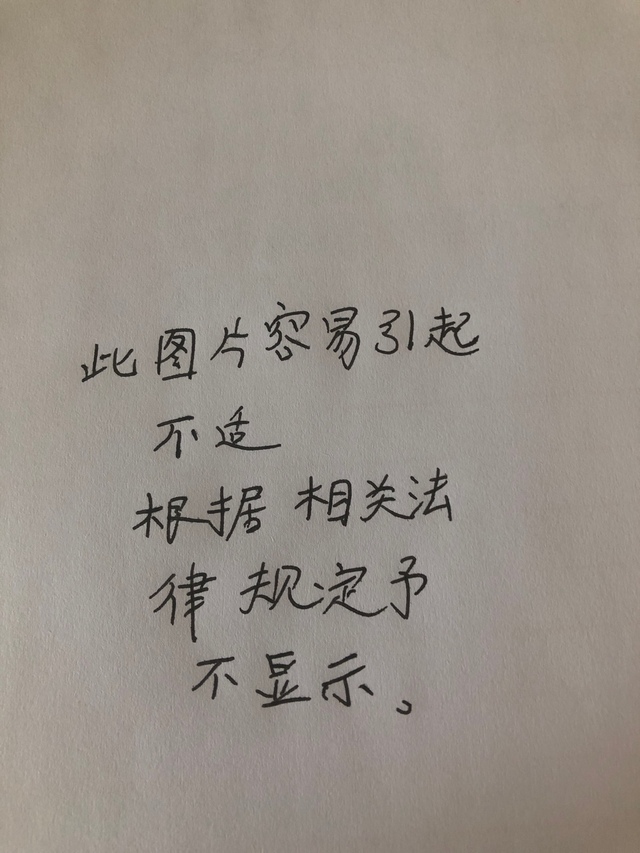 此图片容易引起
不适
根据相关法
律规定予
不显示。